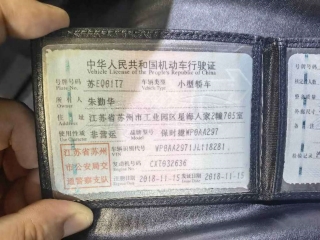 中华人民共和国机动车行驶证
Vehicle License of the People's Republic of China
号牌号码 苏E001T7 车辆类型 小型轿车
Plate No. Vehicle Type
所有人 朱勤华
Owner
住址 江苏省苏州市工业园区星海人家2幢705室
使用性质 非营运 品牌型号 保时捷WP0AA297
江苏省苏州 车辆识别代号
市公安局交 发动机号码 CXT032636
通警察支队 注册日期 2018-11-15 发证日期 2018-11-15